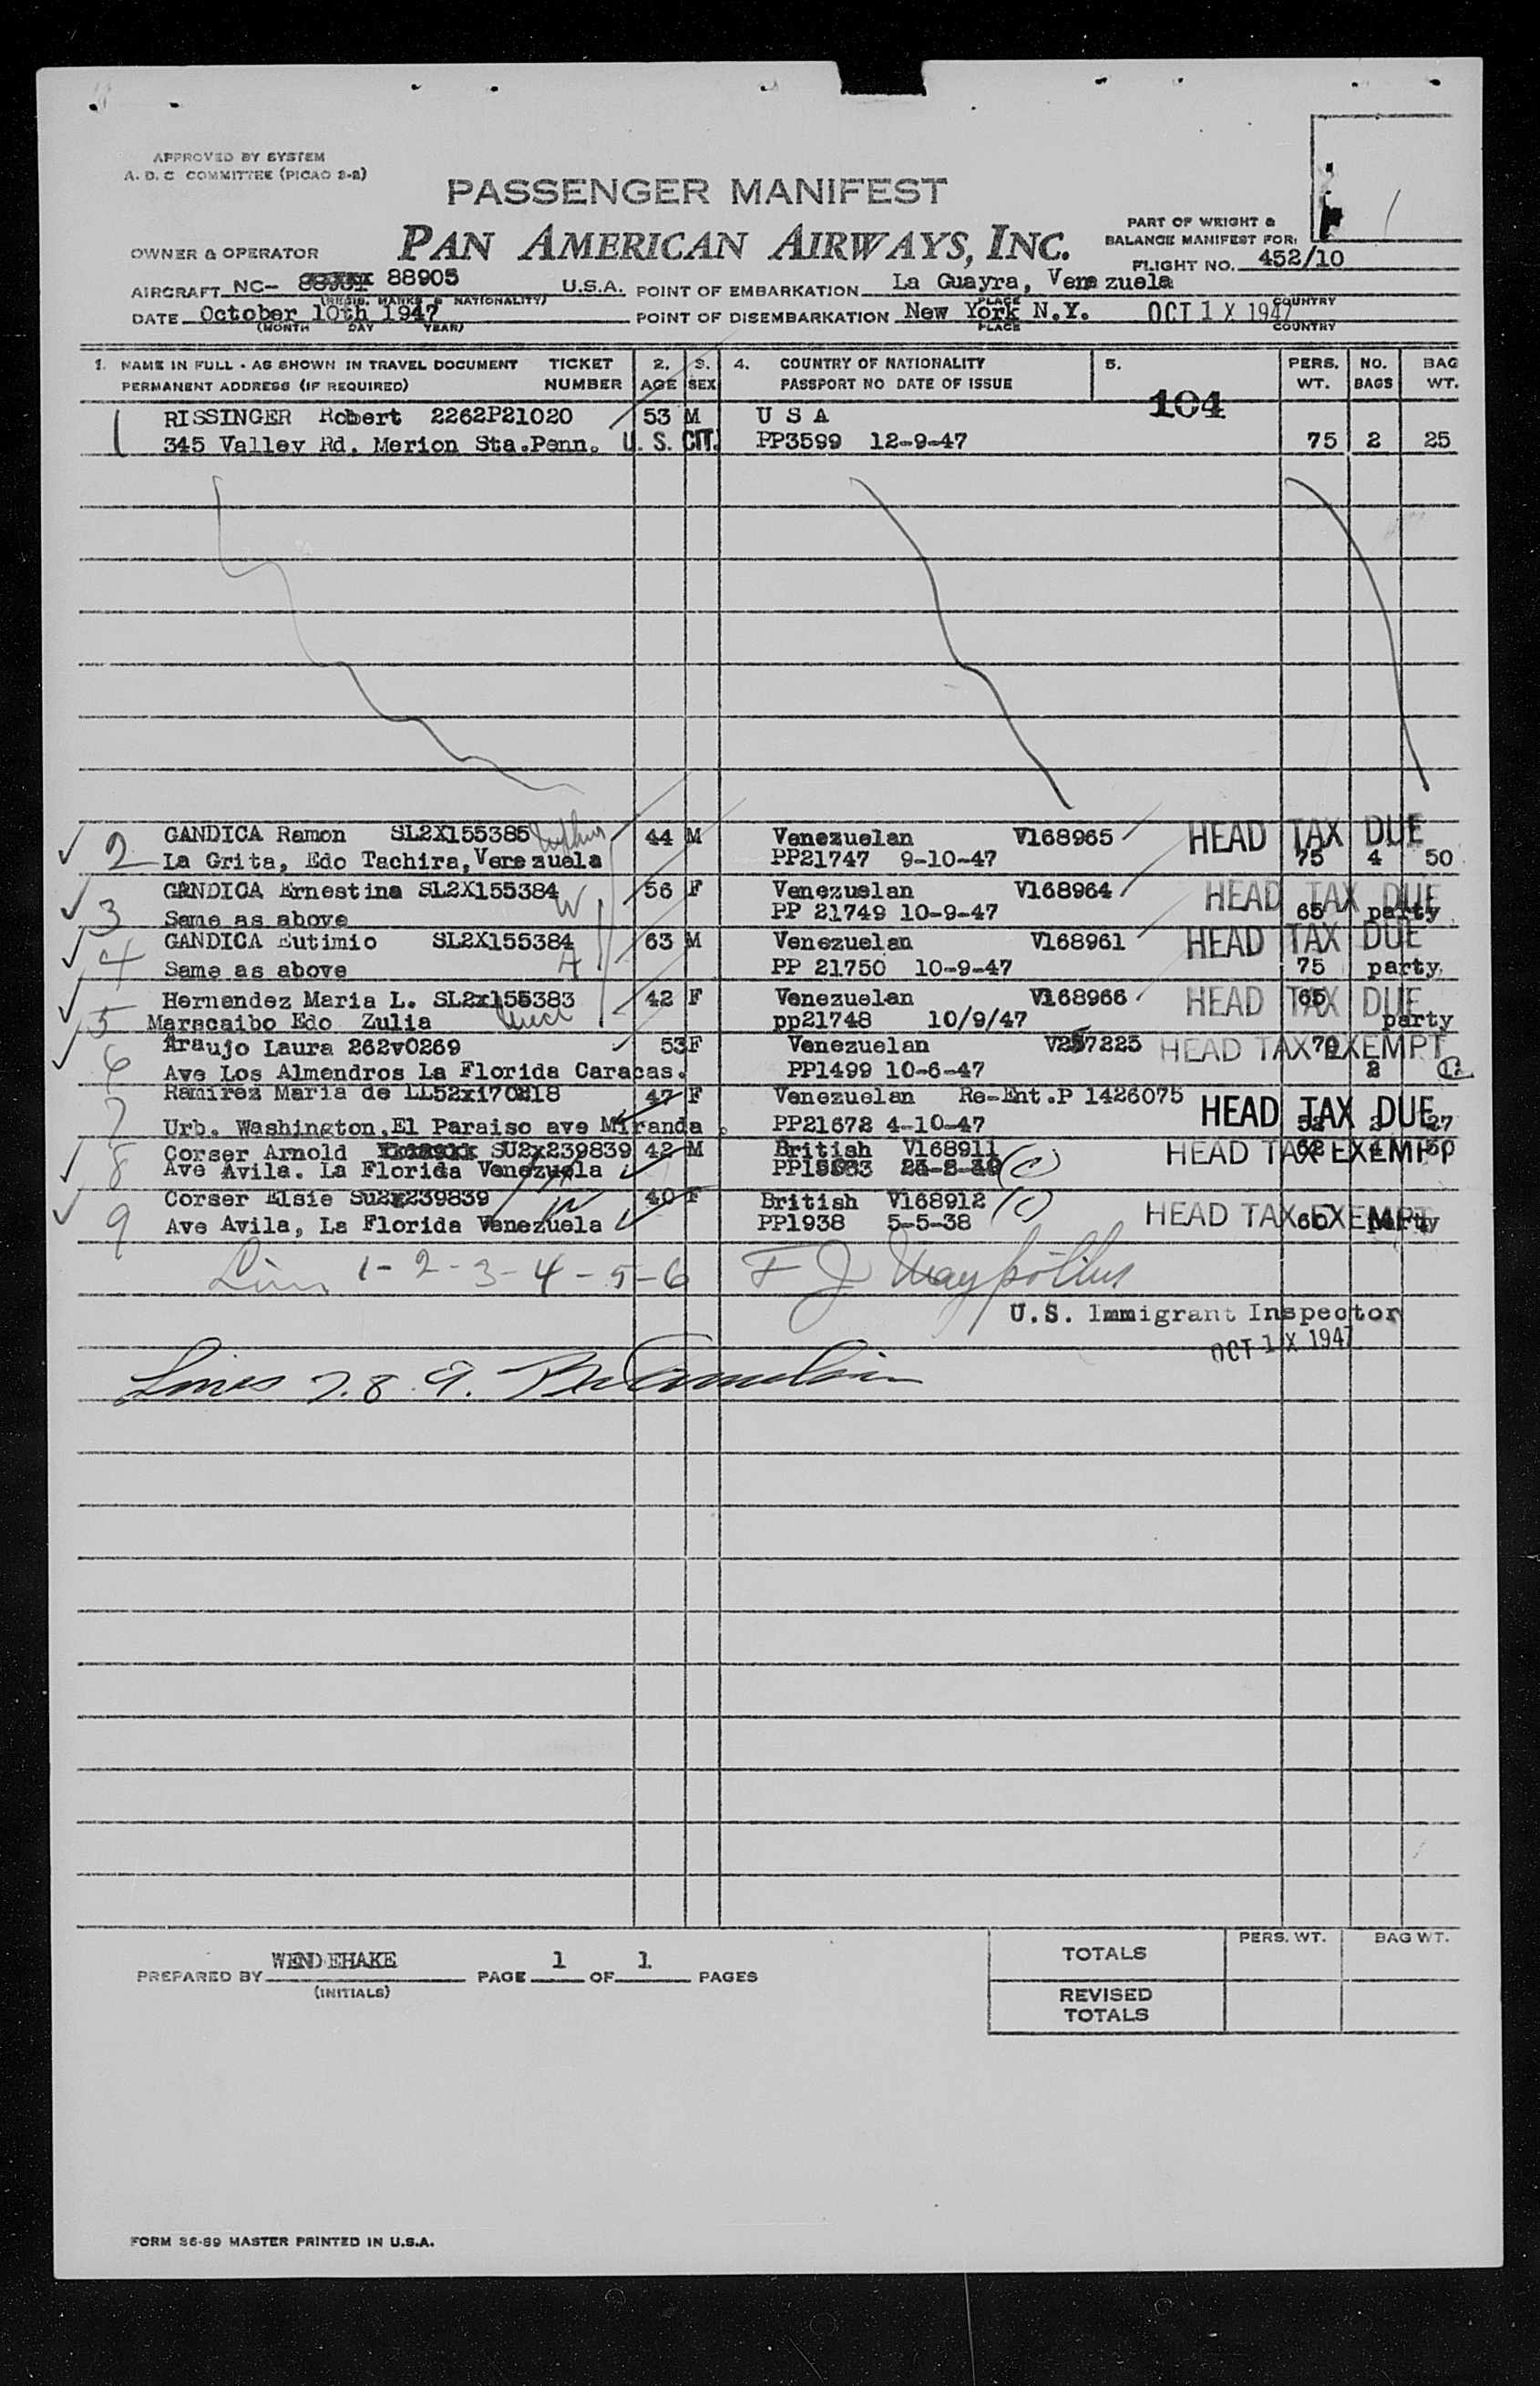 APPROVED BY SYSTEM
A. D. C COMMITTEE (PICAO 2-2)
PASSENGER MANIFEST
PAN AMERICAN AIRWAYS, INC.
PART OF WEIGHT &
BALANCE MANIFEST FOR:
OWNER & OPERATOR
FLIGHT NO. 452/10
AIRCRAFT NC- 88905 U.S.A. POINT OF EMBARKATION La Guayra, Venezuela
(REGIS. MARKS & NATIONALITY) PLACE COUNTRY
DATE October 10th 1947 POINT OF DISEMBARKATION New York N.Y. OCT 1 X 1947
(MONTH DAY YEAR) PLACE COUNTRY
1. NAME IN FULL - AS SHOWN IN TRAVEL DOCUMENT TICKET 2. 3. 4. COUNTRY OF NATIONALITY 5. PERS. NO. BAG
PERMANENT ADDRESS (IF REQUIRED) NUMBER AGE SEX PASSPORT NO DATE OF ISSUE WT. BAGS WT.
104
1 RISSINGER Robert 2262P21020 53 M U S A
345 Valley Rd. Merion Sta.Penn. U. S. CIT. PP3599 12-9-47 75 2 25
2 GANDICA Ramon SL2X155385 44 M Venezuelan V168965 HEAD TAX DUE
La Grita, Edo Tachira, Venezuela PP21747 9-10-47 75 4 50
3 GANDICA Ernestina SL2X155384 W 56 F Venezuelan V168964 HEAD TAX DUE
Same as above PP 21749 10-9-47 65 party
4 GANDICA Eutimio SL2X155384 63 M Venezuelan V168961 HEAD TAX DUE
Same as above PP 21750 10-9-47 75 party
5 Hernendez Maria L. SL2x155383 42 F Venezuelan V168966 HEAD TAX DUE 65
Maracaibo Edo Zulia pp21748 10/9/47 party
6 Araujo Laura 262v0269 53F Venezuelan V257225 HEAD TAX EXEMPT 70
Ave Los Almendros La Florida Caracas. PP1499 10-6-47 2
7 Ramirez Maria de LL52x170218 47 F Venezuelan Re-Ent.P 1426075 HEAD TAX DUE
Urb. Washington,El Paraiso ave Miranda . PP21672 4-10-47 27
8 Corser Arnold SU2x239839 42 M British V168911 HEAD TAX EXEMPT
Ave Avila. La Florida Venezuela (C)
9 Corser Elsie Su2x239839 W 40 F British V168912 (C) HEAD TAX EXEMPT
Ave Avila, La Florida Venezuela PP1938 5-5-38 party
1-2-3-4-5-6 F J
U.S. Immigrant Inspector
OCT 1 X 1947
Lines 7. 8. 9.
PREPARED BY WENDEHAKE PAGE 1 OF 1 PAGES
(INITIALS)
PERS. WT. BAG WT.
TOTALS
REVISED
TOTALS
FORM 36-89 MASTER PRINTED IN U.S.A.